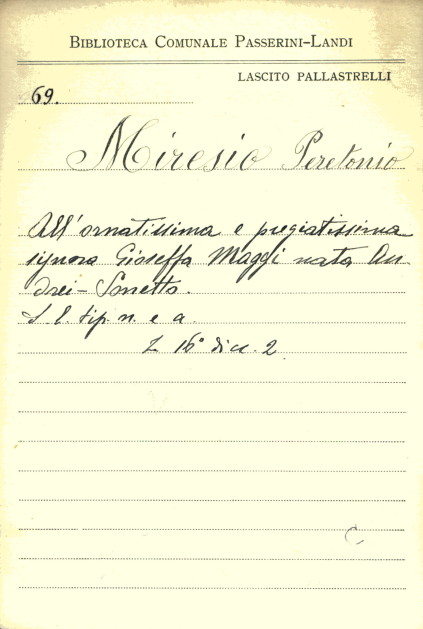 BIBLIOTECA COMUNALE PASSERINI-LANDI
LASCITO PALLASTRELLI
69.
Miresio Peretonio
All'ornatissima e pregiatissima
signora Gioseffa Maggi nata An
drei - Sonetto.
S. l. tip. n. e a.
16°
2
C